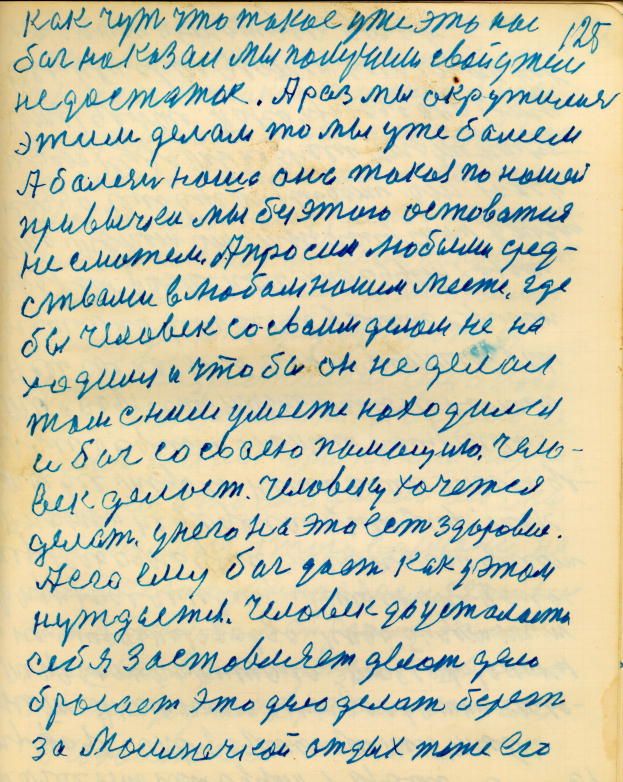 128
как чут что такое уже это нас
бог наказал мы получили свой этим
недостаток. А раз мы окружилися
этим делам то мы уже балеем
А балезн наша она такая по нашей
привычки мы без этого оставатся
не сможем. А просим любыми сред-
ствами в любом нашим месте, где
бы человек со своим делом не на
ходился и что бы он не делал
там с ним уместе находился
и бог со своею помощию. Чело-
век делает. Человеку хочется
делат. у него на это ест здоровие.
А его ему бог дает как у этом
нуждается. Человек до усталости
себя заставляет делат дело
бросает это дело делат берет
за отдых тоже его